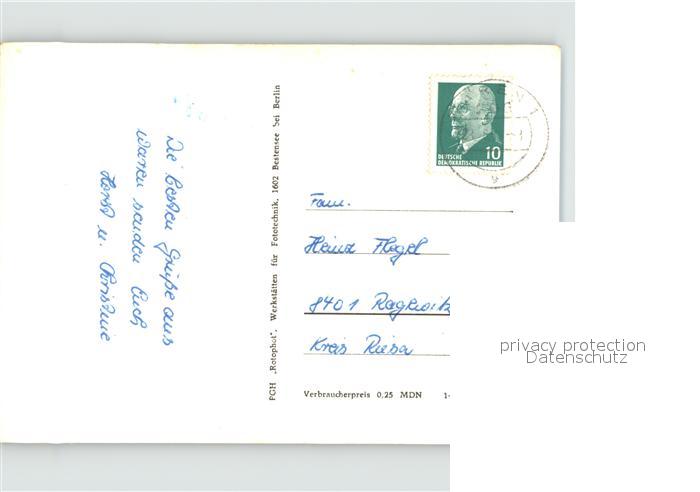 Die besten Grüße aus
Waren senden Euch
Horst u. Christine
PGH „Rotophot", Werkstätten für Fototechnik, 1602 Bestensee bei Berlin
10
DEUTSCHE
DEMOKRATISCHE REPUBLIK
Fam.
Heinz Flegel
8401 Ragewitz
Kreis Riesa
Verbraucherpreis 0,25 MDN 1-
privacy protection
Datenschutz